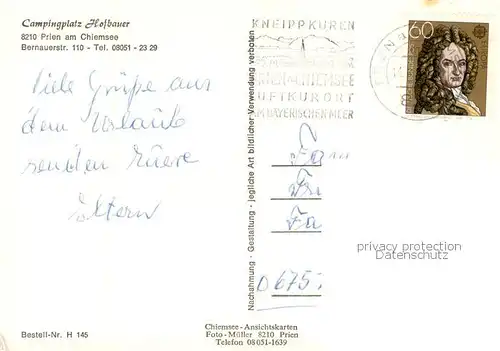 Campingplatz Hofbauer
8210 Prien am Chiemsee
Bernauerstr. 110 - Tel. 08051 - 23 29
Viele Grüße aus
dem Urlaub
senden Euere
Eltern
Nachahmung - Gestaltung - jegliche Art bildlicher Verwendung verboten
KNEIPPKUREN
PRIEN AM CHIEMSEE
LUFTKURORT
AM BAYERISCHEN MEER
60
Fa
Fa
D 675
privacy protection
Datenschutz
Bestell-Nr. H 145
Chiemsee-Ansichtskarten
Foto-Müller 8210 Prien
Telefon 08051-1639